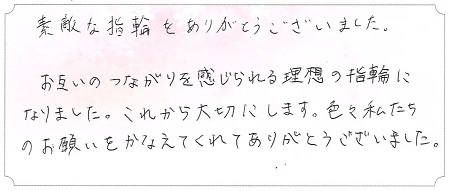 素敵な指輪をありがとうございました。
お互いのつながりを感じられる理想の指輪に
なりました。これから大切にします。色々私たち
のお願いをかなえてくれてありがとうございました。